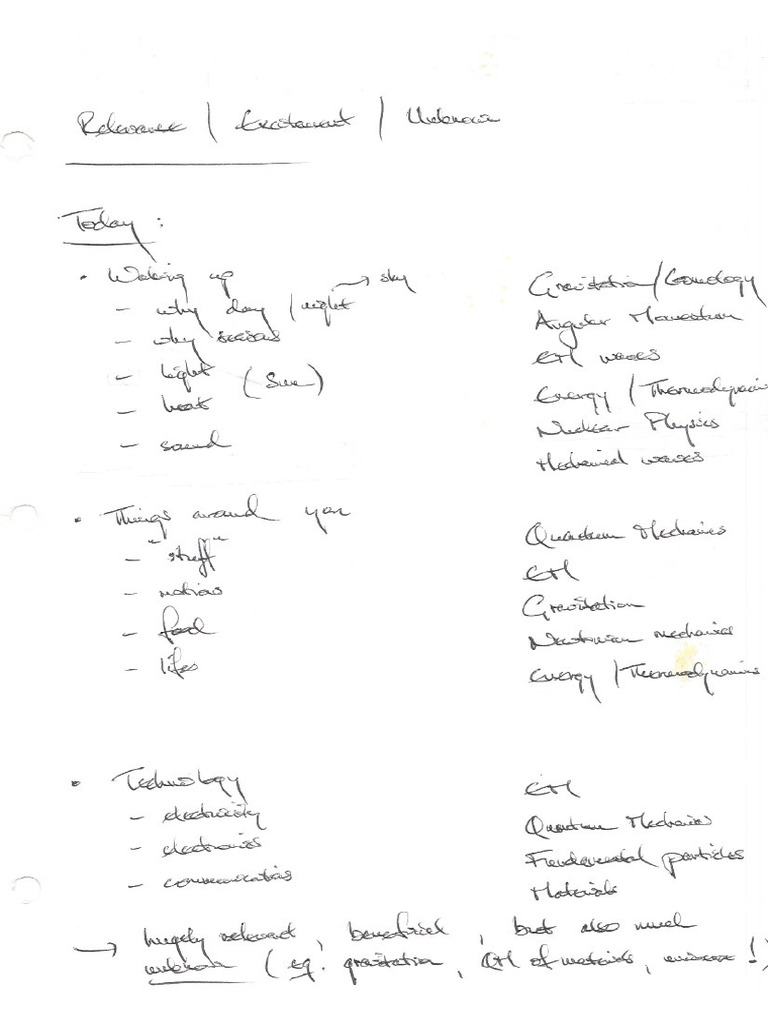 Relevance / Excitement / Unknown
Today :
• Waking up
→ sky
– why day / night
– why seasons
– light (Sun)
– heat
– sound
Gravitation/Cosmology
Angular Momentum
EM waves
Energy / Thermodynamics
Nuclear Physics
Mechanical waves
• Things around you
– "stuff"
– motions
– food
– lifes
Quantum Mechanics
EM
Gravitation
Newtonian mechanics
Energy / Thermodynamics
• Technology
– electricity
– electronics
– communication
EM
Quantum Mechanics
Fundamental particles
Materials
→ hugely relevant, beneficial, but also much
unknown (eg. gravitation, QM of materials, universe!)